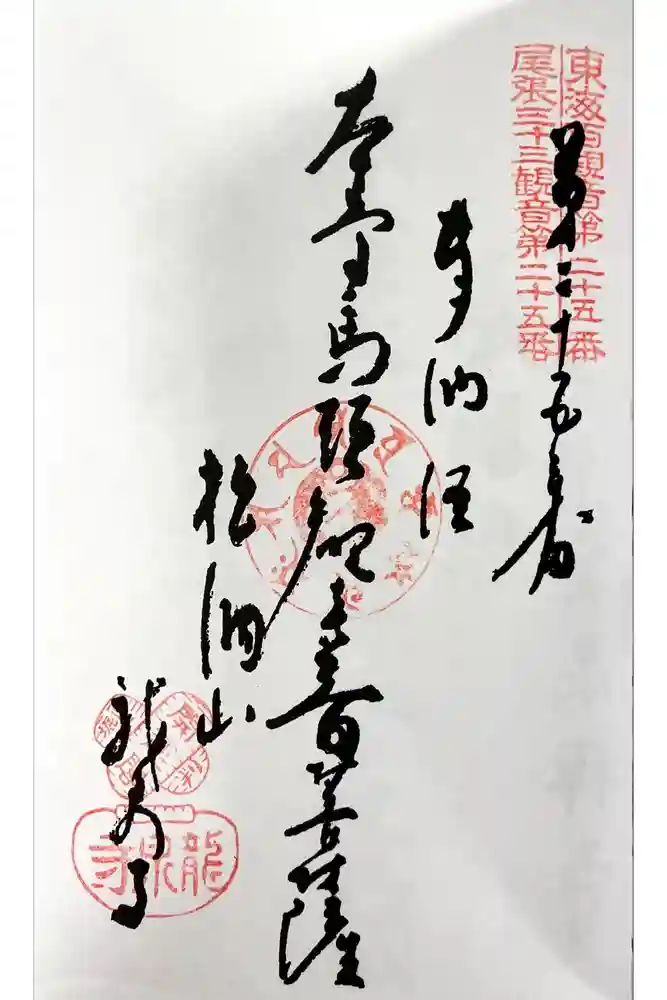 東海百観音第二十五番
尾張三十三観音第二十五番
第二十五番
奉納経
本堂馬頭観世音菩薩
松洞山
龍泉寺
龍泉寺